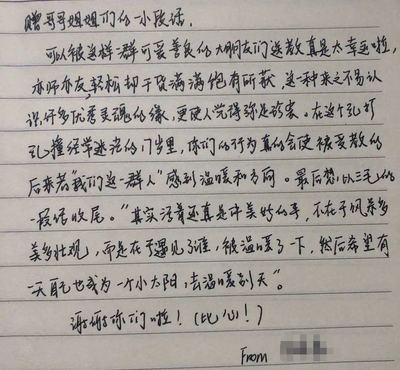 赠哥哥姐姐们的一小段话.
可以被这样一群可爱善良的大朋友们送教真是太幸运啦,
亦师亦友,轻松却干货满满饱有所获,这一种来之不易认
识好多优秀灵魂的缘,更使人觉得弥足珍贵。在这个乱打
乱撞经学迷茫的门岁里,你们的行为真的会使被受教的
后来者"我们这一群人"感到温暖和方向。最后想以三毛的
一段话收尾。"其实活着还真是件美好的事,不在于风景多
美多壮观,而是在于遇见了谁,被温暖了一下,然后希望有
一天自己也成为一个小太阳,去温暖别人"。
谢谢你们啦!(比心!)
From